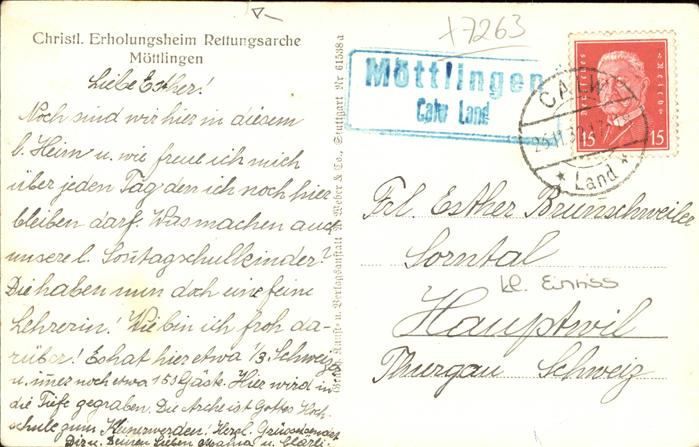 Christl. Erholungsheim Rettungsarche
Möttlingen
Liebe Esther!
Noch sind wir hier in diesem
l. Heim u. wie freue ich mich
über jeden Tag den ich noch hier
bleiben darf. Was machen auch
unsere l. Sontagschulkinder?
Die haben nun doch eine feine
Lehrerin! Wie bin ich froh da-
rüber! Es hat hier etwa 1/3 Schweizer
u. immer noch etwa 150 Gäste. Hier wird in
die Tiefe gegraben. Die Arche ist Gottes Hoch-
schule zum Kleinerwerden! Herzl. Grüsse sendet
Dir u. Deiner lieben Mama u. Clärli.
Weber & Co., Stuttgart Nr 61538a
+7263
Möttlingen
Calw Land
CALW
Land
Deutsches Reich
15 15
Frl. Esther Brunschweiler
Sorntal
kl. Einriss
Hauptwil
Thurgau Schweiz